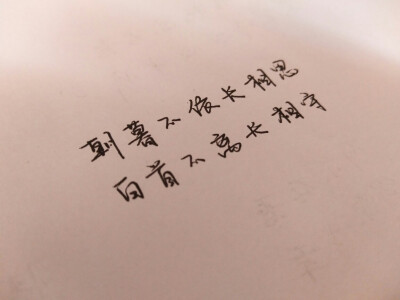 朝暮不依长相思
白首不离长相守